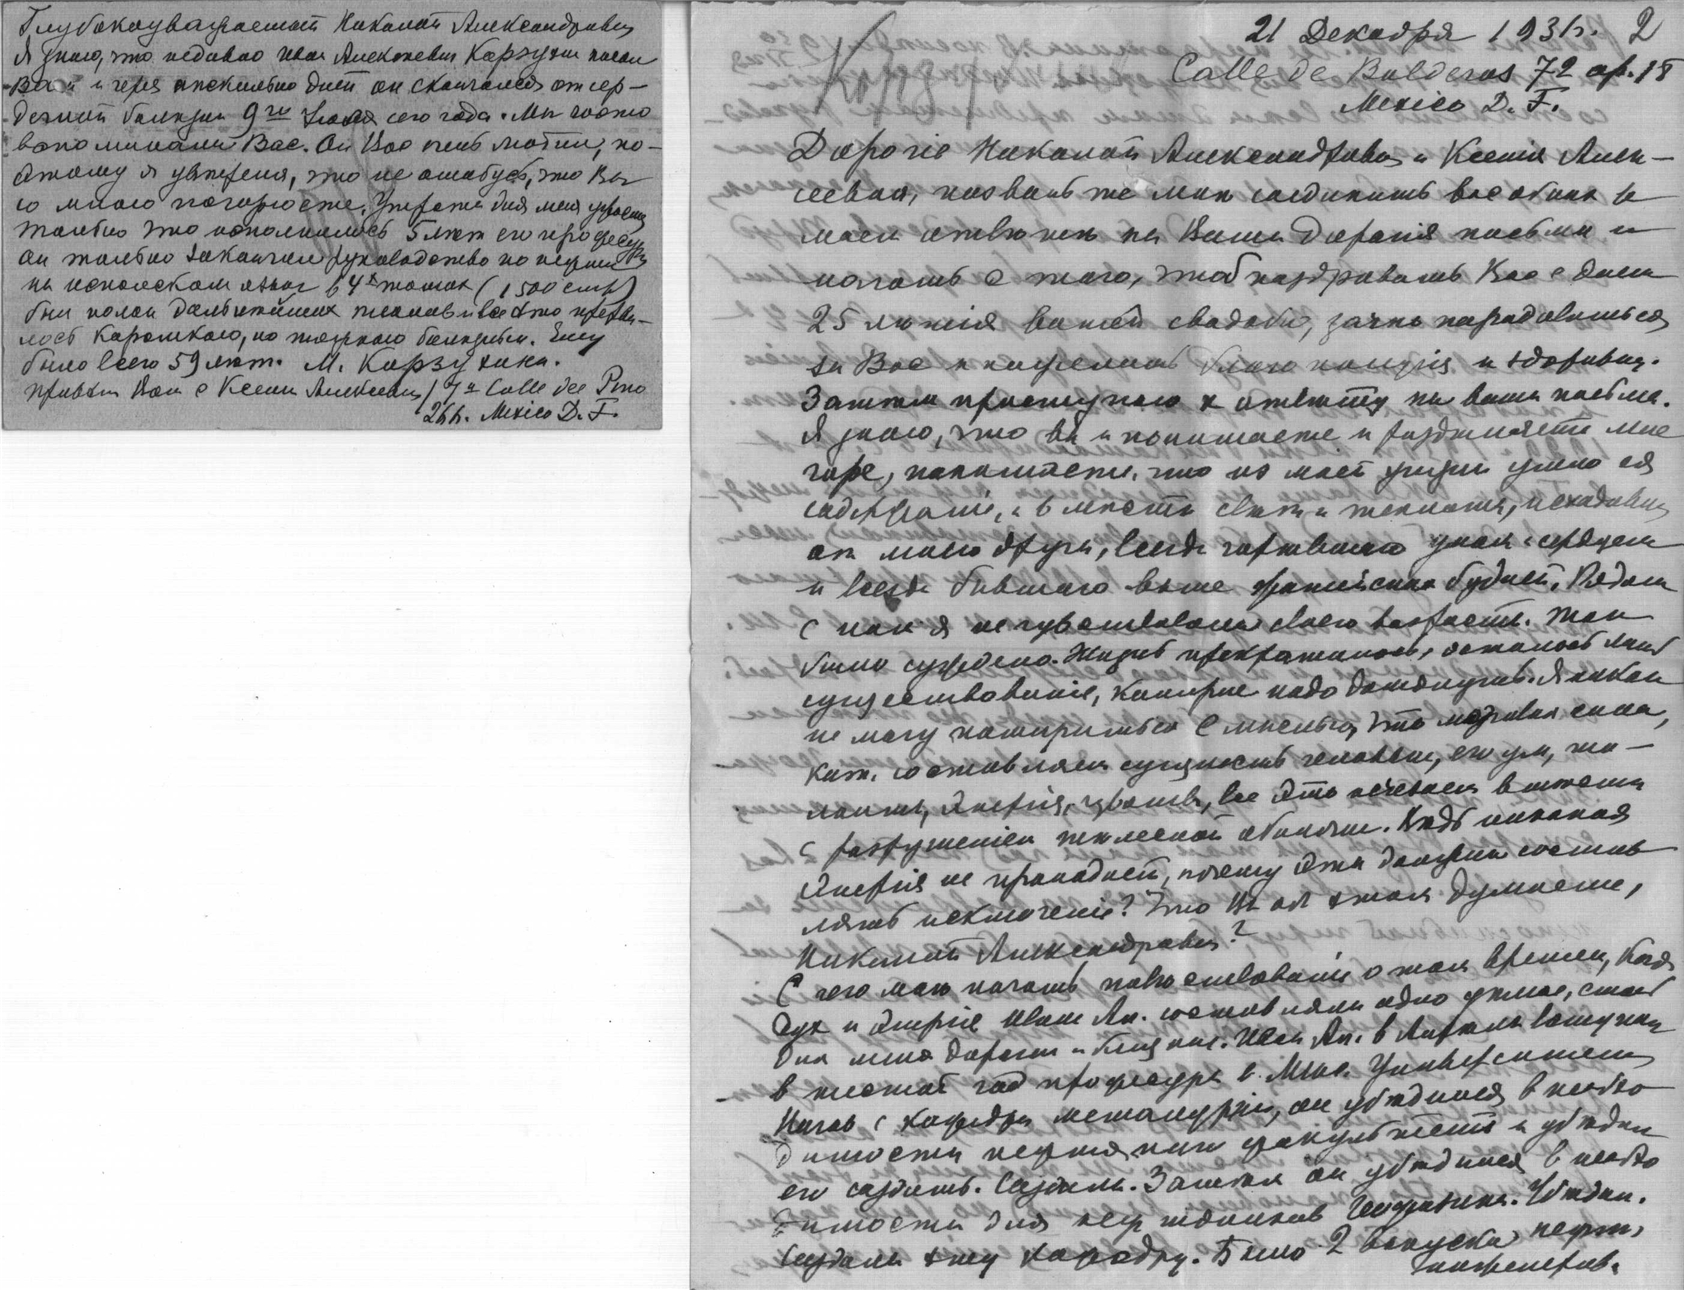 Глубокоуважаемый Николай Александрович
Я знаю, что недавно Иван Алексеевич Корзухин писал
Вам и через несколько дней он скончался от сер-
дечной болезни 9го Июля сего года. Мы часто
вспоминали Вас. Он Вас очень любил, по-
этому я уверена, что не ошибусь, что Вы
со мною погорюете. Утрата для меня
только что исполнилось 5 лет его профессуры
он только закончил руководство по нефти
на испанском языке в 4х томах (1500 стр.)
был полон дальнейших планов и все это прерва-
лось короткою, но тяжкою болезнью. Ему
было всего 59 лет. М. Корзухина.
привет Вам с Ксенией Алексеевной / 7a Calle del Pino
266. Mexico D. F.
21 Декабря 1931г. 2
Calle de Balderas 72 ap. 18
Mexico D. F.
Корзу
Дорогие Николай Александрович и Ксения Алек-
сеевна, позвольте мне соединить вас обоих в
моем ответе на Ваши дорогия письма и
начать с того, чтоб поздравить Вас с днем
25 летия вашей свадьбы, заочно порадоваться
за Вас и пожелать благополучия и здоровья.
Затем приступаю к ответу на ваши письма.
Я знаю, что вы и понимаете и разделяете мое
горе, понимаете, что из моей жизни ушло ея
содержание, а вместе свет и теплота, исходившия
от моего друга, всегда горевшаго умом и сердцем
и всегда бывшаго выше житейских будней. Рядом
с ним я не чувствовала своего возраста. Так
было суждено. Жизнь прекратилась, осталось лишь
существование, которое надо дотянуть. Я никак
не могу помириться с мыслью, что мозговая сила,
кот. составляла сущность человека, его ум, та-
лант, энергия, чувства, все это исчезает вместе
с разрушением телесной оболочки. Ведь никакая
энергия не пропадает, почему эта должна состав-
лять исключение? Что Вы об этом думаете,
Николай Александрович?
С чего мне начать повествование о том времени, когда
дух и энергия Ивана Ал. составляли одно целое, столь
для меня дорогое и близкое. Иван Ал. в Апреле вступил
в шестой год профессуры в Мекс. Университете
Начав с кафедры металургии, он убедился в необхо-
димости нефтяного факультета и убедил
его создать. Создали. Затем он убедился в необхо-
димости для нефтяников Геофизики. Убедил.
Создали эту кафедру. Было 2 выпуска нефт.
инженеров.